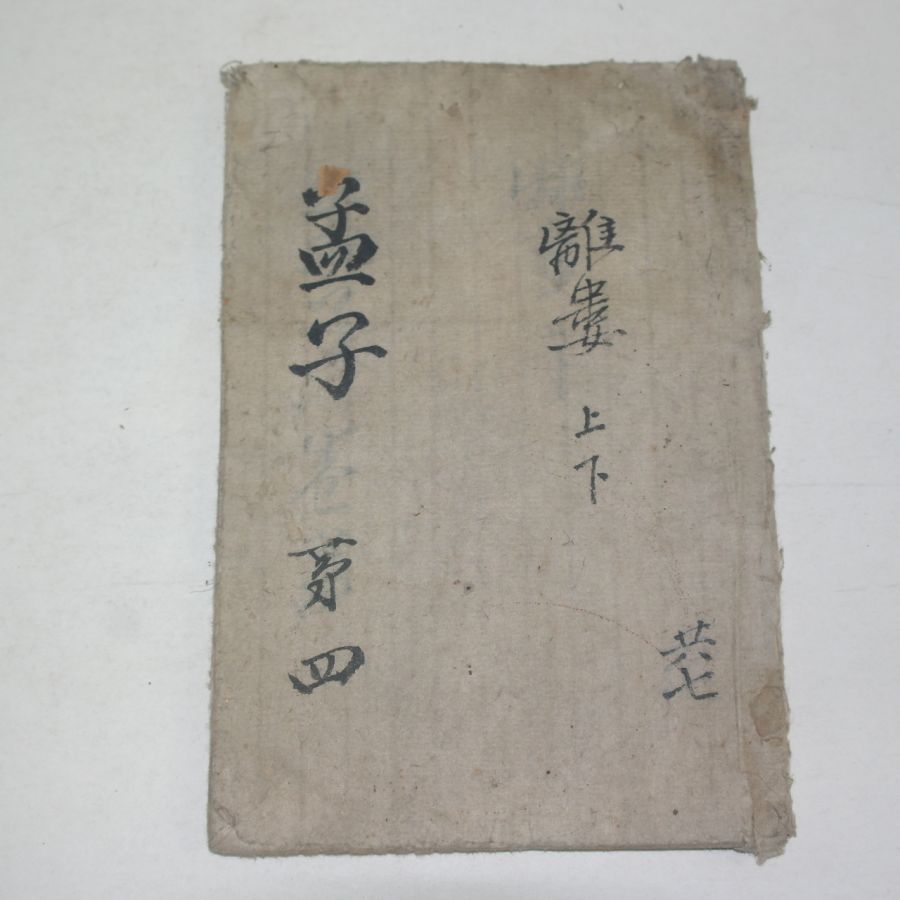 離婁 上下
孟子 苐四
共七